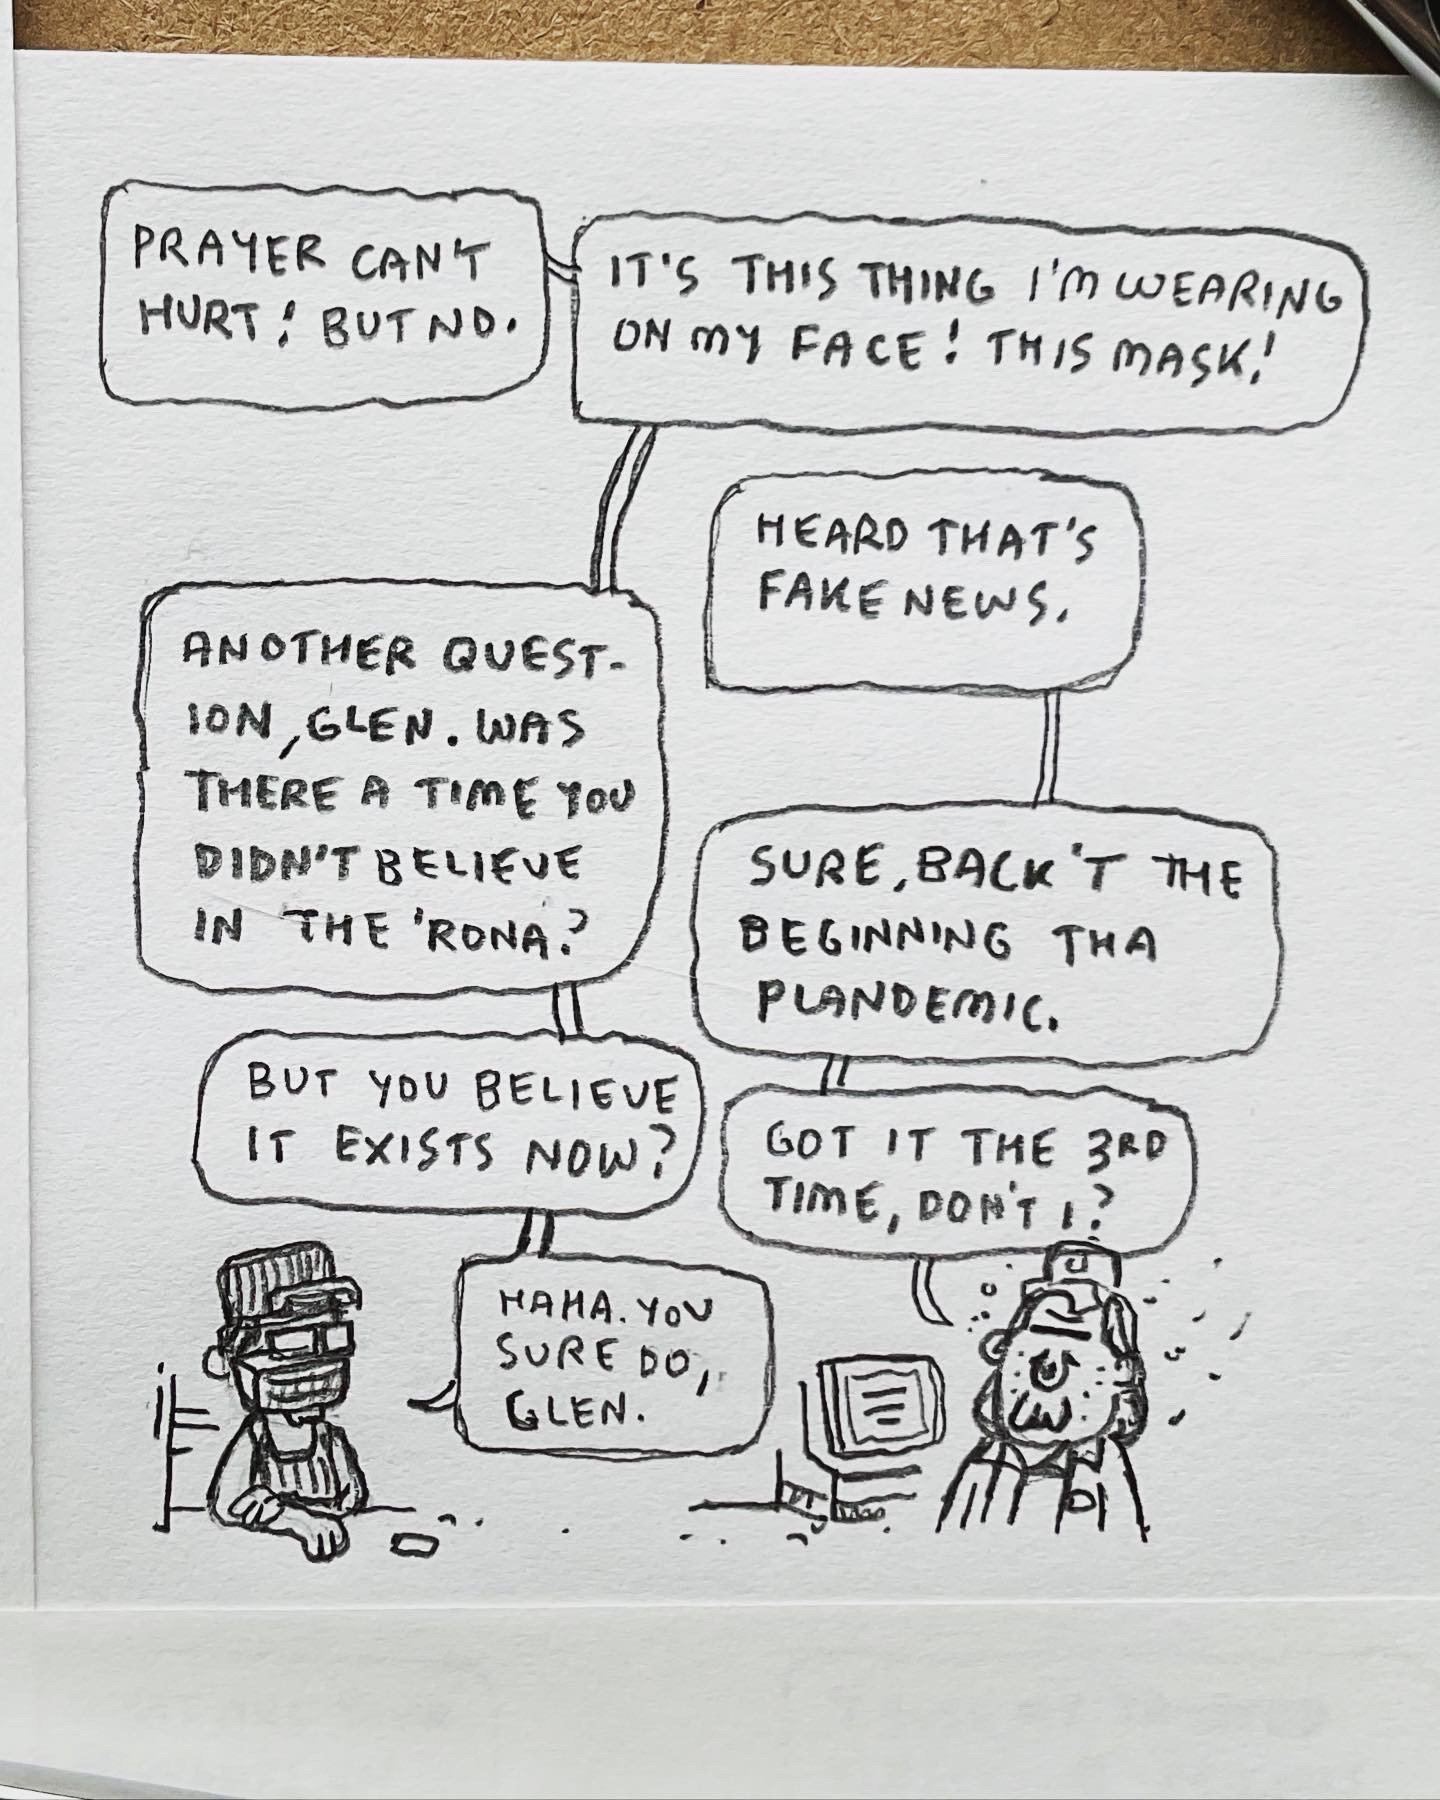 PRAYER CAN'T
HURT! BUT NO.
IT'S THIS THING I'M WEARING
ON MY FACE! THIS MASK!
HEARD THAT'S
FAKE NEWS.
ANOTHER QUEST-
ION, GLEN. WAS
THERE A TIME YOU
DIDN'T BELIEVE
IN THE 'RONA?
SURE, BACK 'T THE
BEGINNING THA
PLANDEMIC.
BUT YOU BELIEVE
IT EXISTS NOW?
GOT IT THE 3RD
TIME, DON'T I?
HAHA. YOU
SURE DO,
GLEN.